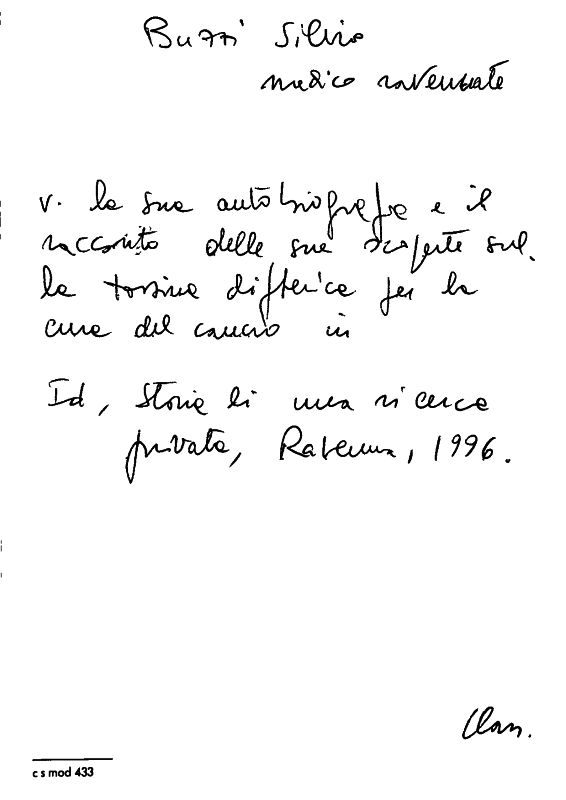 Buzzi Silvio
medico ravennate
v. la sua autobiografia e il
racconto delle sue scoperte sul.
la tossina difterica per la
cura del cancro in
Id, Storia di una ricerca
privata, Ravenna, 1996.
c s mod 433